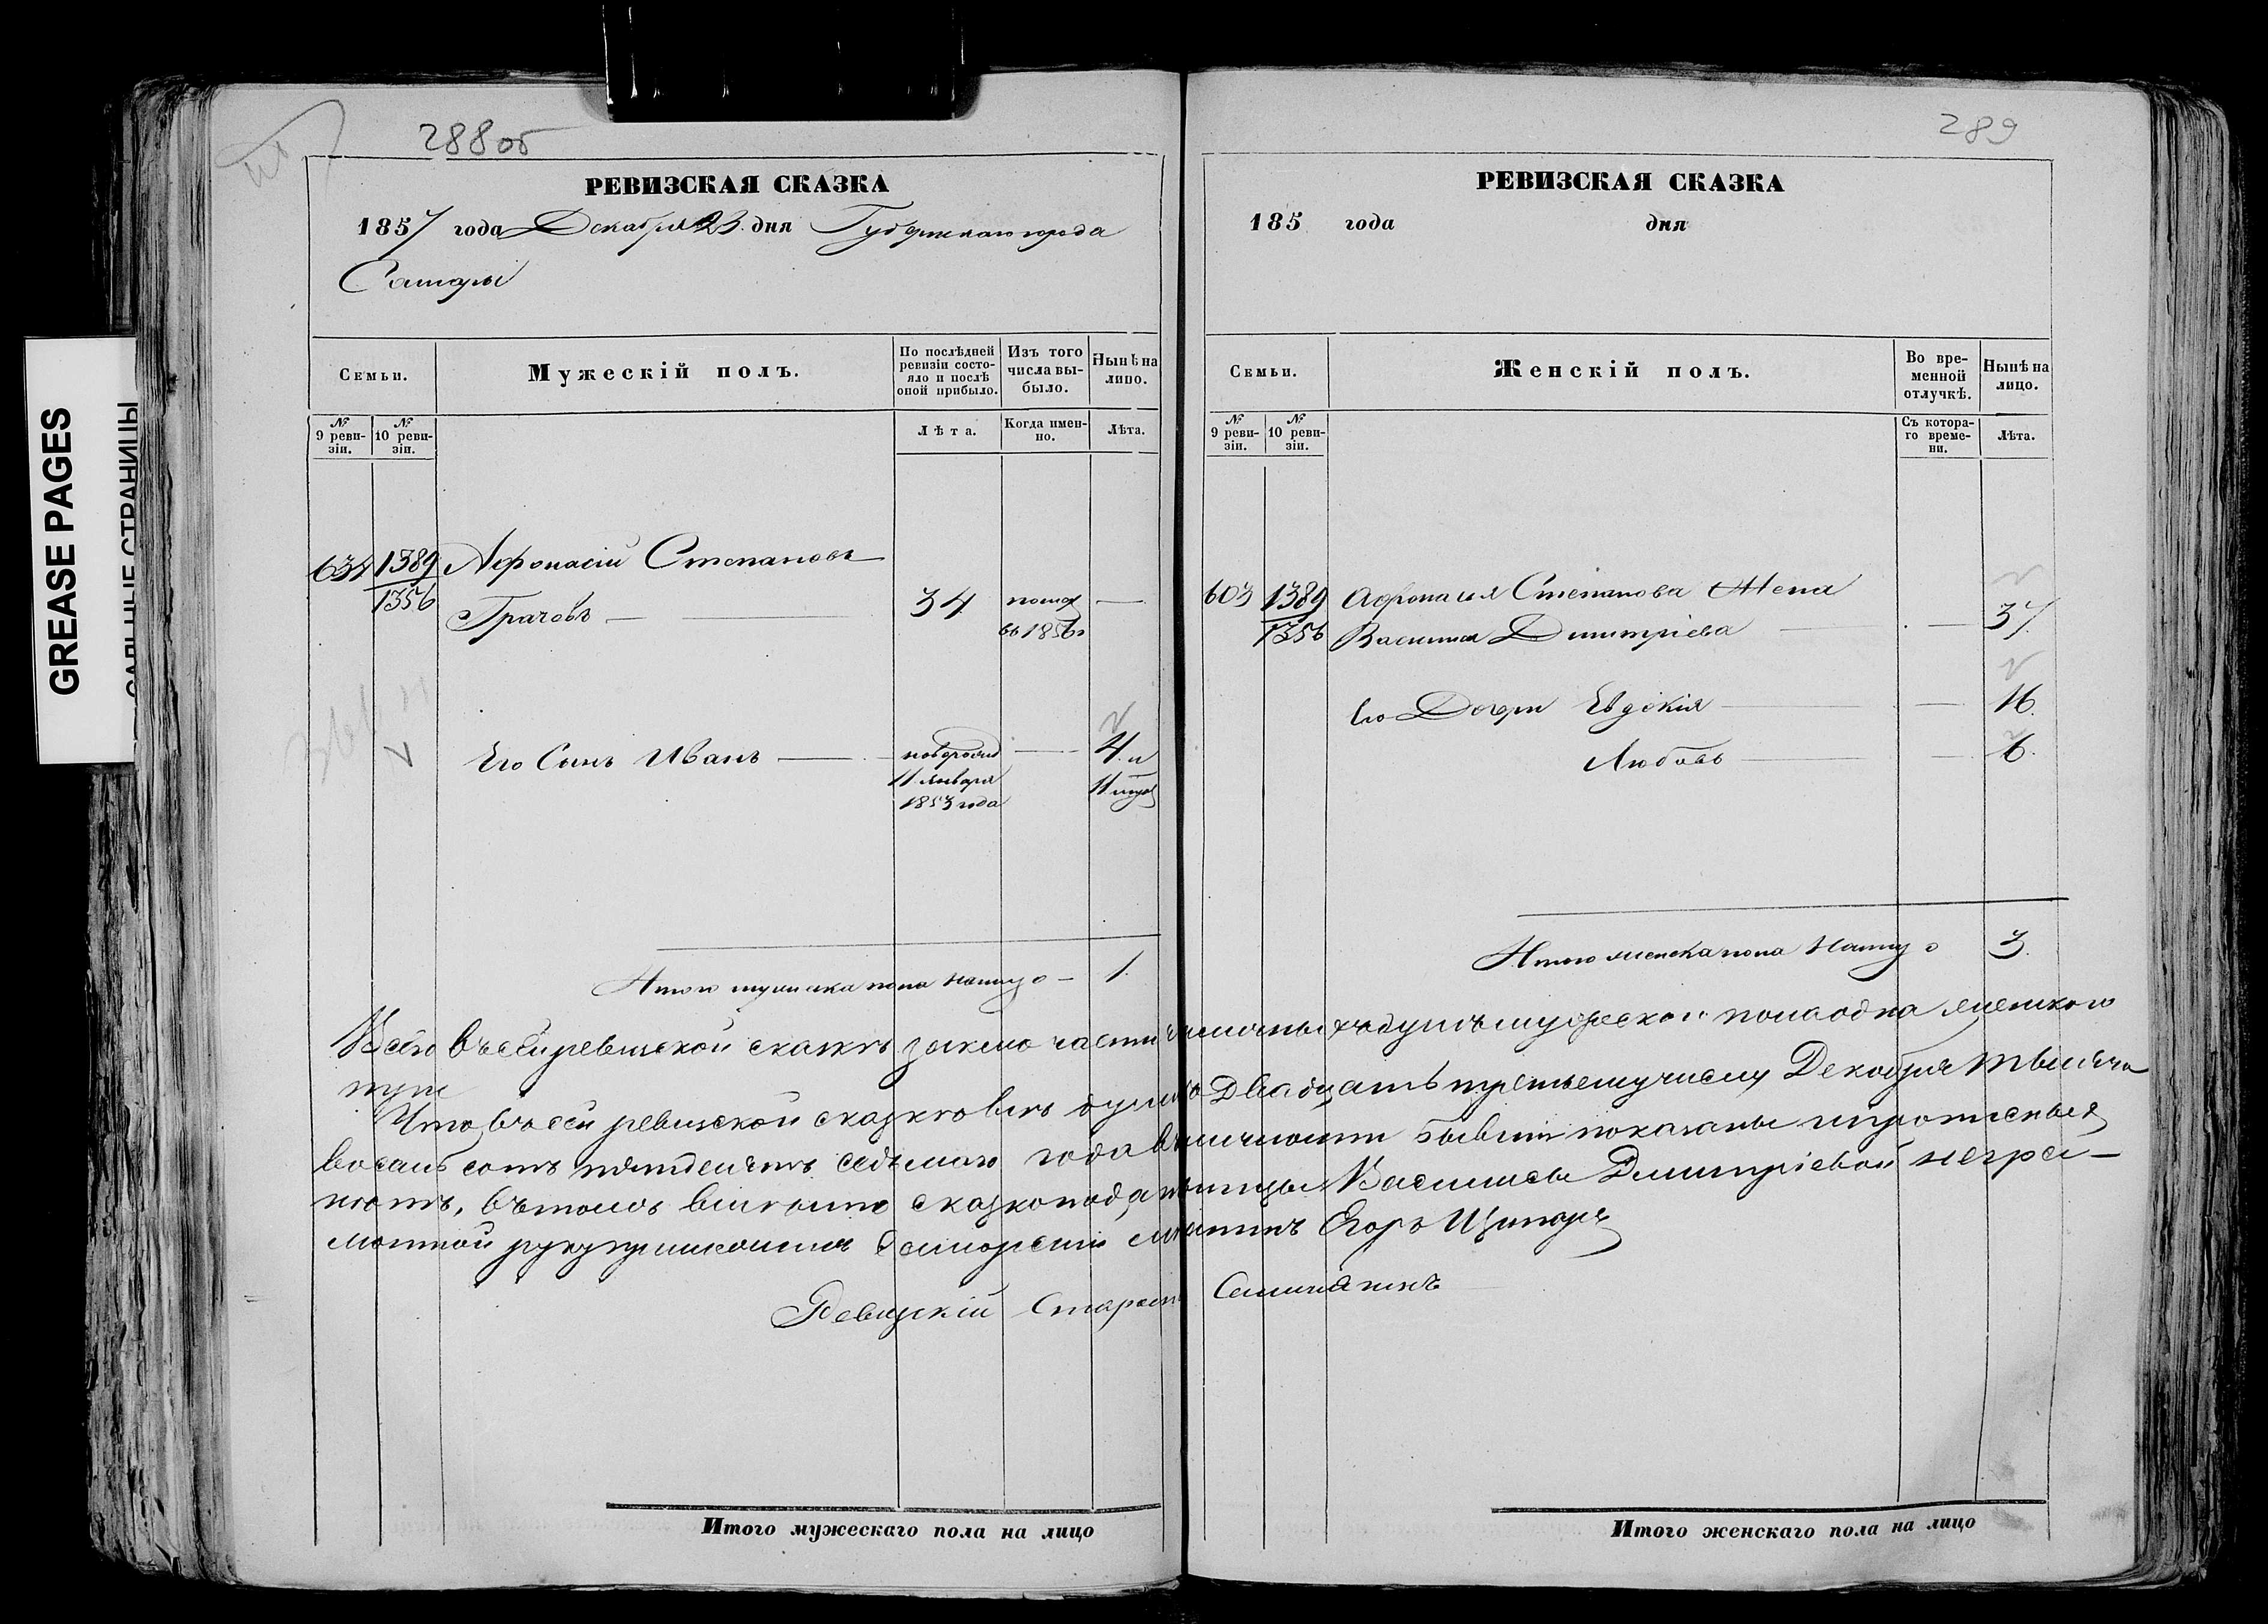 GREASE PAGES
САЛЬНЫЕ СТРАНИЦЫ
288об
РЕВИЗСКАЯ СКАЗКА
1857 года Декабря 23 дня Губернскаго города
Самары
Семьи.
Мужескій полъ.
По послѣдней ревизіи состояло и послѣ оной прибыло.
Изъ того числа выбыло.
Нынѣ на лицо.
№ 9 ревизіи.
№ 10 ревизіи.
Лѣта.
Когда именно.
Лѣта.
634 1389 Афонасій Степановъ
1356 Грачовъ — 34 — въ 1856 —
Его Сынъ Иванъ — новорожд — 4. и
11 Января 11
1853 года
Итого мужска пола налицо — 1.
289
РЕВИЗСКАЯ СКАЗКА
185 года дня
Семьи.
Женскій полъ.
Во временной отлучкѣ.
Нынѣ на лицо.
№ 9 ревизіи.
№ 10 ревизіи.
Съ котораго времени.
Лѣта.
603 1389 Афонасія Степанова Жена
1356 Василиса Димитріева — — 37.
Его Дочери Евдокія — — 16.
Любовь — — 6.
Итого женска пола налицо 3.
Всего въ сей ревизской сказкѣ наличныхъ душъ мужеска пола одна женскаго
три
Что въ сей ревизской сказкѣ всѣ души къ Двадцать третьему числу Декабря тысяча
восемь сотъ пятдесятъ седьмаго года въ наличности бывши показаны и
нѣтъ, въ томъ вмѣсто сказкоподательницы Василисы Димитріевой неграмотной
Егоръ
Ревизскій Староста
Итого мужескаго пола на лицо
Итого женскаго пола на лицо